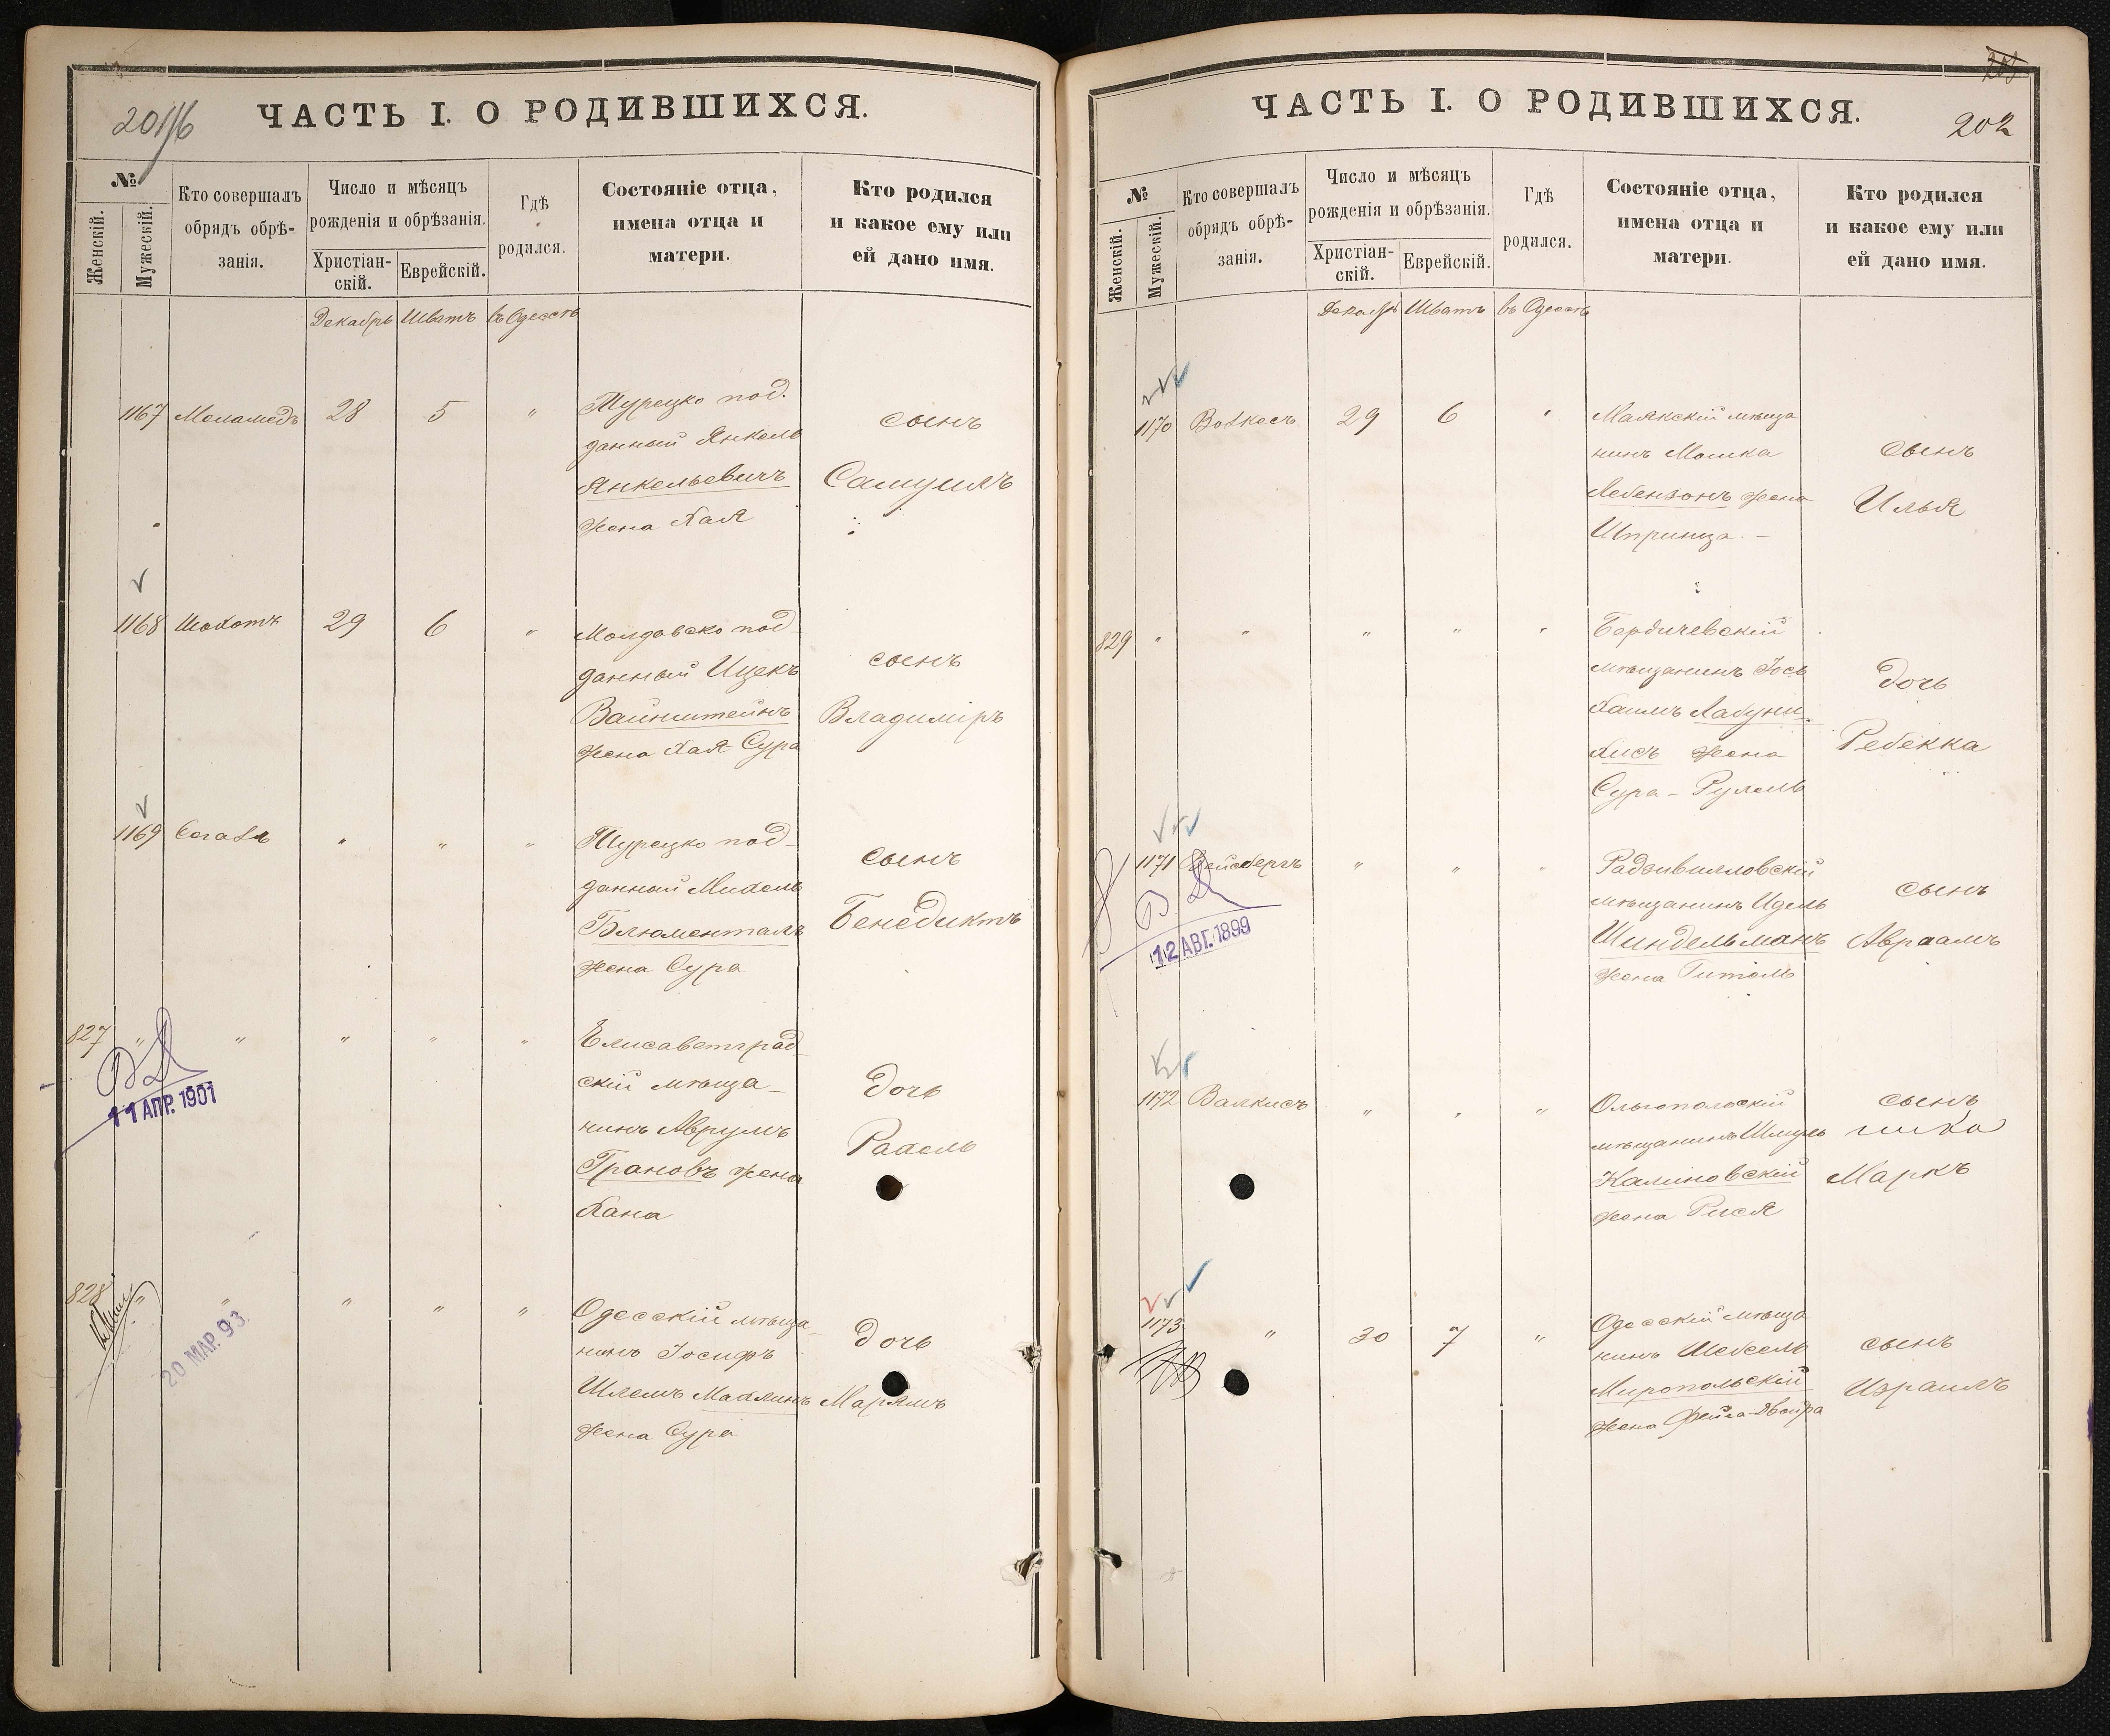 ЧАСТЬ I. О РОДИВШИХСЯ.
№
Женскій.
Мужескій.
Кто совершалъ
обрядъ обрѣ-
занія.
Число и мѣсяцъ
рожденія и обрѣзанія.
Христіан-
скій.
Еврейскій.
Гдѣ
родился.
Состояніе отца,
имена отца и
матери.
Кто родился
и какое ему или
ей дано имя.
Декабрь Шватъ въ Одессѣ
1167 Меламедъ 28 5 " Турецко под.
данный Янкель
Янкелевичъ
жена Хая
сынъ
Самуилъ
1168 Шохотъ 29 6 " Молдавско под-
данный Ицекъ
Вайнштейнъ
жена Хая Сура
сынъ
Владиміръ
1169 Сегаль " " " Турецко под-
данный Михель
Блюменталь
жена Сура
сынъ
Бенедиктъ
827 " " " " " Елисаветград
скій мѣща-
нинъ Аврумъ
Грановъ жена
Хана
дочь
Рахель
11 АПР. 1901
828 " " " " " Одесскій мѣща-
нинъ Іосифъ
Шлемъ Махлинъ
жена Сура
дочь
Марямъ
20 МАР. 93.
ЧАСТЬ I. О РОДИВШИХСЯ.
202
№
Женскій.
Мужескій.
Кто совершалъ
обрядъ обрѣ-
занія.
Число и мѣсяцъ
рожденія и обрѣзанія.
Христіан-
скій.
Еврейскій.
Гдѣ
родился.
Состояніе отца,
имена отца и
матери.
Кто родился
и какое ему или
ей дано имя.
Декабрь Шватъ въ Одессѣ
1170 29 6 " Маякскій мѣща
нинъ Мошка
Лебензонъ жена
Шпринца. -
сынъ
Илья
829 " " " " " Бердичевскій
мѣщанинъ Іось
Хаимъ Лабуни-
жена
Сура - Рухель
дочь
Ребекка
1171 Вейсбергъ " " " Радзивилловскій
мѣщанинъ Идель
Шиндельманъ
жена Гитель
сынъ
Авраамъ
12 АВГ. 1899
1172 Валкисъ " " " Ольгопольскій
мѣщанинъ Шмуль
Калиновскій
жена Рися
сынъ
Маркъ
1173 " 30 7 " Одесскій мѣща
нинъ Шебсель
Миропольскій
жена Фейга-Двойра
сынъ
Израиль